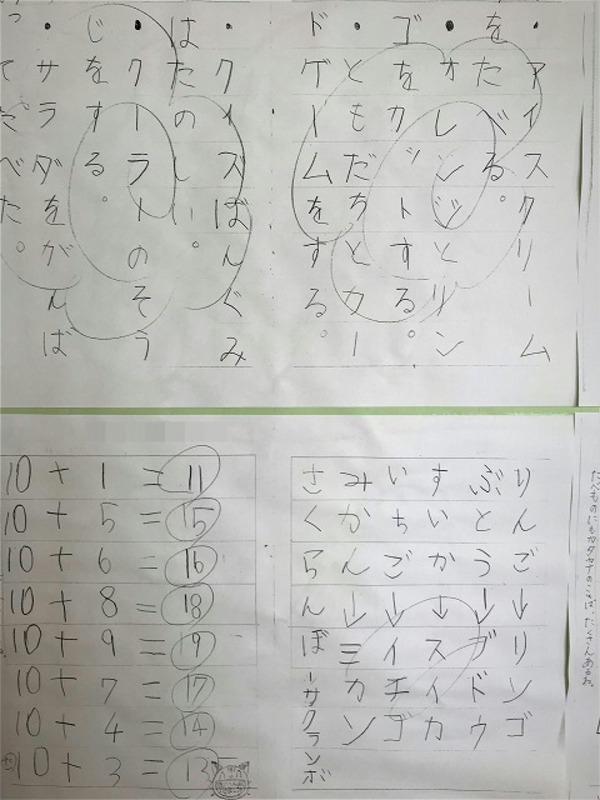 ・アイスクリーム
をたべる。
・オレンジとリン
ゴをカットする。
・ともだちとカー
ドゲームをする。
・クイズばんぐみ
はたのしい。
・クーラーのそう
じをする。
・サラダをがんば
ってたべた。
たべものにもカタカナのことばが、たくさんあるね。
りんご↓リンゴ
ぶとう↓ブドウ
すいか↓スイカ
いちご↓イチゴ
みかん↓ミカン
さくらんぼーサクランボ
10+1=11
10+5=15
10+6=16
10+8=18
10+9=19
10+7=17
10+4=14
10+3=13